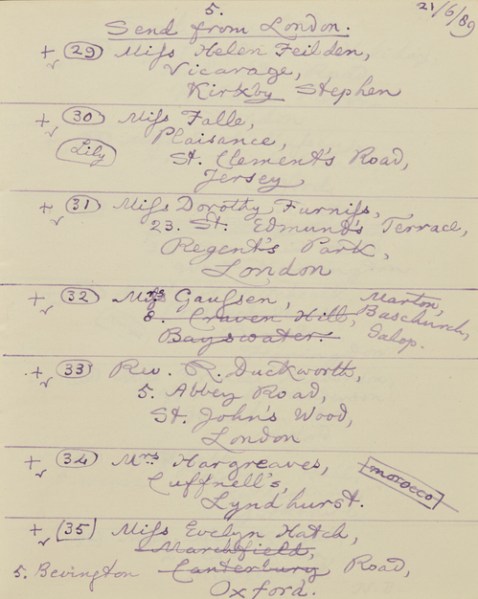 5.
21/6/89
Send from London.
+ (29) Miss Helen Feilden,
Vicarage,
Kirkby Stephen
+ (30) Miss Falle,
Lily
Plaisance,
St. Clement's Road,
Jersey
+ (31) Miss Dorothy Furniss,
23. St. Edmund's Terrace,
Regent's Park,
London
+ (32) Mrs Gaussen,
8. Craven Hill,
Bayswater.
Marton,
Baschurch,
Salop.
+ (33) Rev. R. Duckworth,
5. Abbey Road,
St. John's Wood,
London
+ (34) Mrs Hargreaves,
Cuffnell's,
Lyndhurst.
morocco
+ (35) Miss Evelyn Hatch,
Marchfield,
5. Bevington Canterbury Road,
Oxford.